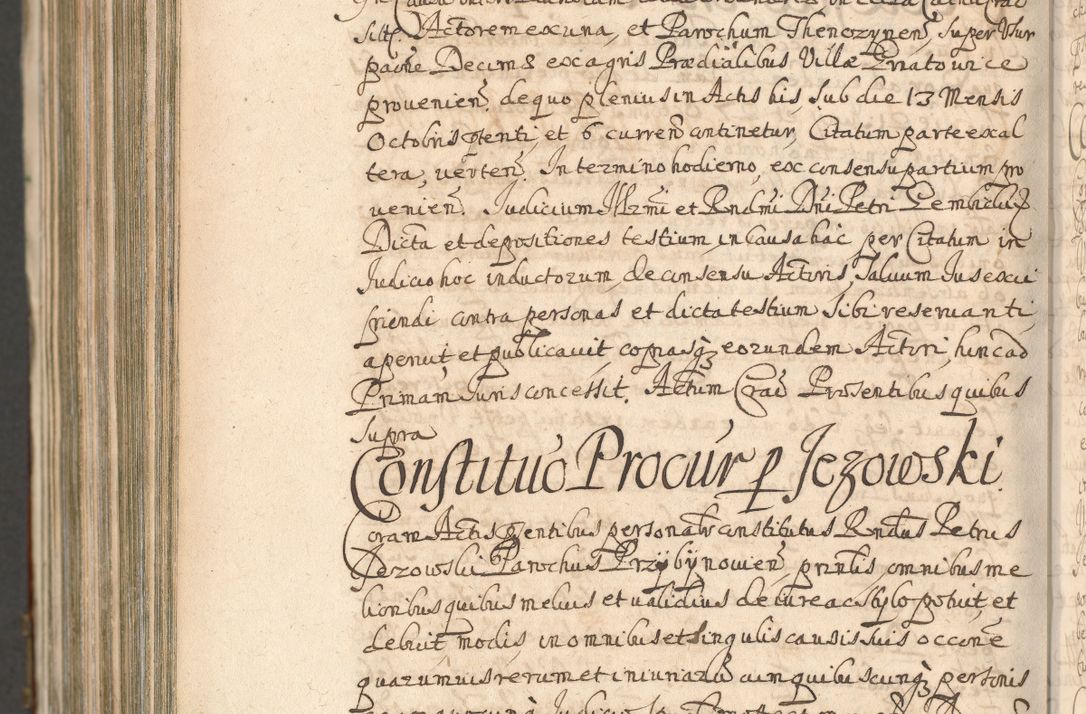 Actorem ex una, et Parochum Thenczynen̄, super Usur
paõne Decimæ ex agris Prædialibus Villæ Gnatowice
prouenien̄, de quo plenius in Actis his sub die 13 Mensis
Octobris ptenti et 6 curren̄ continetur, Citatum parte ex al
tera, uerten̄. In termino hodierno, ex consensu partium pro
uenien̄. Judicium Illr̃mi et Rndmi Dn̄i Petri Gembicki
Dicta et depositiones testium in Causa hac per Citatum in
Judicio hoc inductorum, de consensu Actoris, saluum Jus exci
piendi contra personas et dicta testium sibi reseruanti
aperuit et publicauit copiasq̃ eorundem Actori, hunc ad
Primam Juris concessit. Actum Crac̄ Præsentibus quibus
supra
Constituõ Procur̃ p Jezowski.
Coram Actis p̄sentibus personalr̃ constitutus Rndus Petrus
Jezowski Parochus Przybÿnouien̄ prin̄lis, omnibus me
lioribus quibus melius et ualidius de iure ac stylo potuit, et
debuit modis in omnibus et singulis causis suis occõne
quarumuis rerum et iniuriarũ cum quibuscunq̃ personis